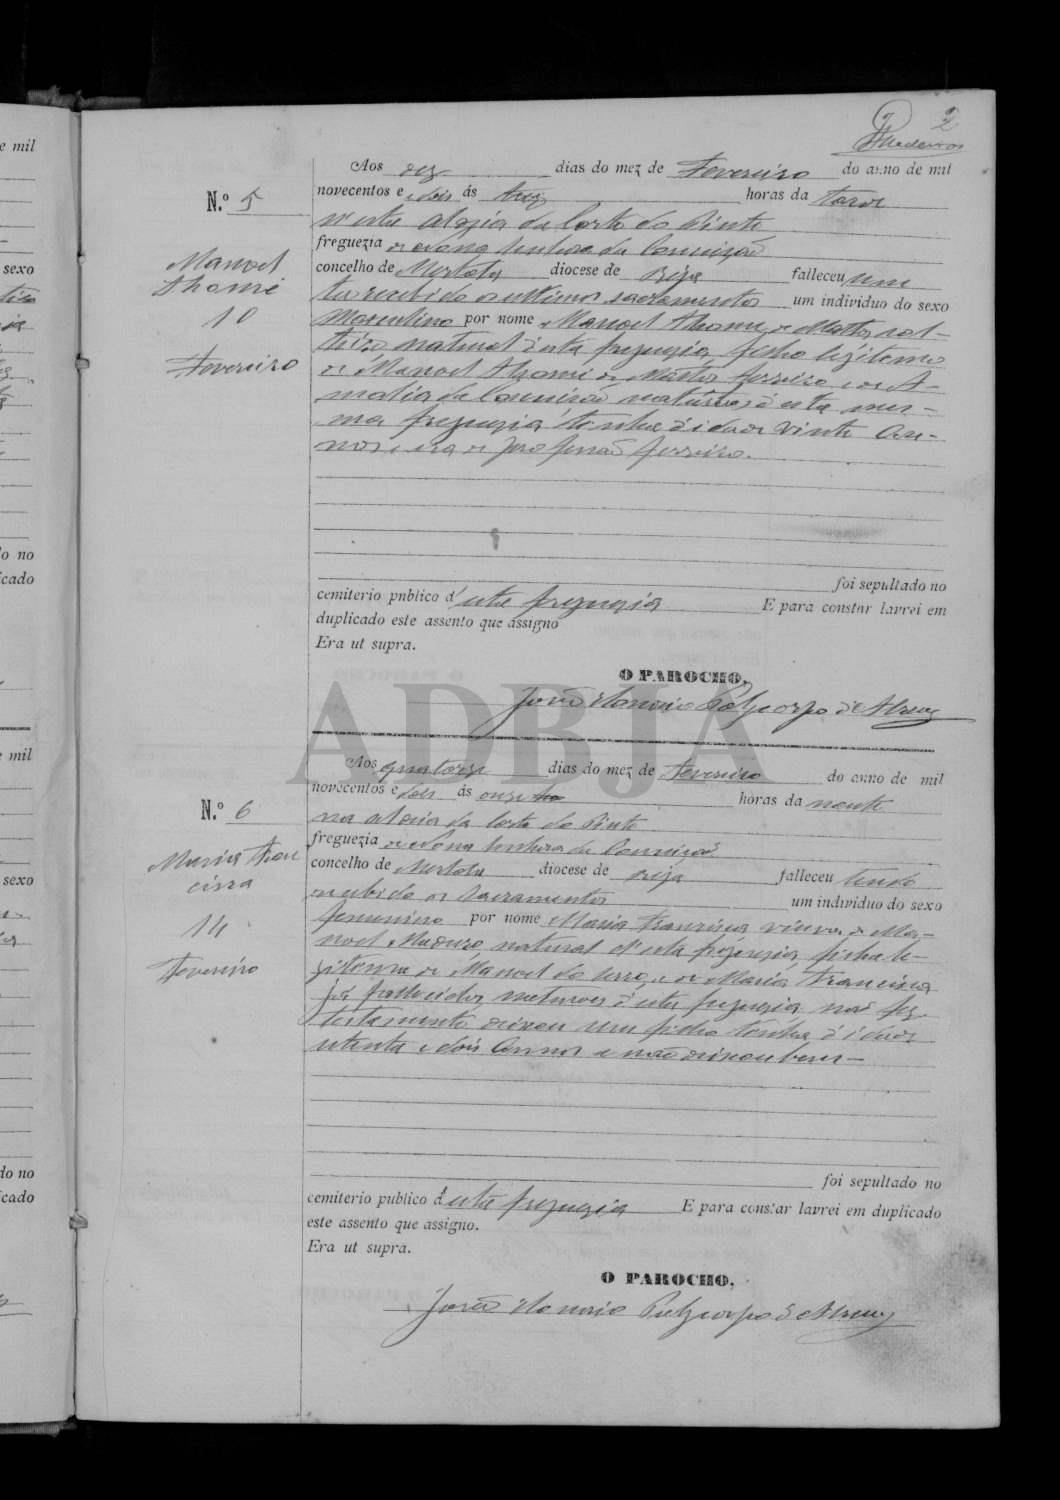 2
Medeiros
Aos dez dias do mez de Fevereiro do anno de mil
N.º 5
novecentos e dois ás trez horas da tarde
n'esta aldeia da Corte do Pinto
freguezia de Nossa Senhora da Conceição
concelho de Mertola diocese de Beja falleceu sem
ter recebido os ultimos sacramentos um individuo do sexo
masculino por nome Manoel Thomé de Mattos sol-
teiro natural d'esta freguezia, filho legitimo
de Manoel Thomé de Mattos ferreiro e de A-
malia da Conceição naturaes d'esta mes-
ma freguezia tinha d'idade vinte an-
nos e era de profissão ferreiro.
Manoel
Thomé
10
Fevereiro
foi sepultado no
cemiterio publico d'esta freguezia E para constar lavrei em
duplicado este assento que assigno
Era ut supra.
O PAROCHO,
ADBJA
Aos quatorze dias do mez de Fevereiro do anno de mil
novecentos e dois ás onze horas da noute
N.º 6
na aldeia da Corte do Pinto
freguezia de Nossa Senhora da Conceição
concelho de Mertola diocese de Beja falleceu tendo
recebido os sacramentos um individuo do sexo
femenino por nome Maria Francisca viuva de Ma-
noel natural d'esta freguezia, filha le-
gitima de Manoel do Serro, e de Maria Francisca
já fallecidos naturaes d'esta freguezia não fez
testamento deixou um filho tinha d'idade
oitenta e dois annos e não deixou bens—
Maria Fran
cisca
14
Fevereiro
foi sepultado no
cemiterio publico d'esta freguezia E para constar lavrei em duplicado
este assento que assigno.
Era ut supra.
O PAROCHO,